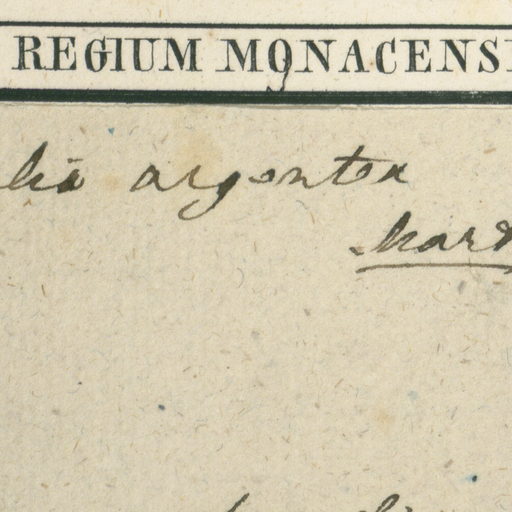 REGIUM MONACENS
lia argentea
Mart